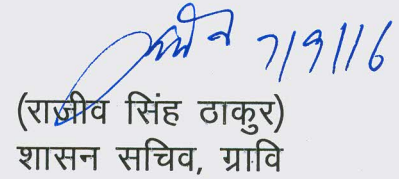 7/9/16
(राजीव सिंह ठाकुर)
शासन सचिव, ग्रावि